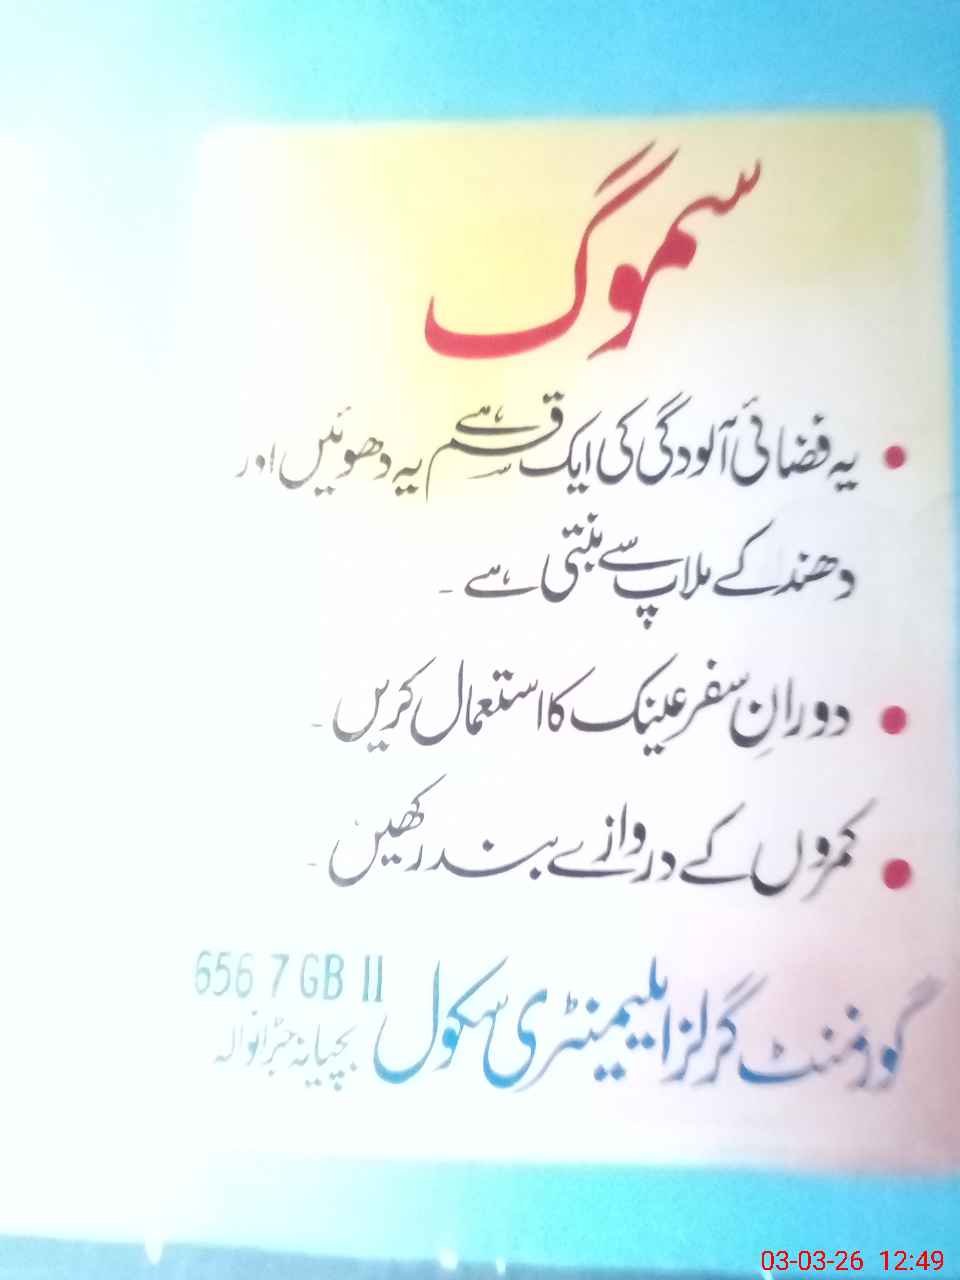 سموگ
• یہ فضائی آلودگی کی ایک قسم ہے یہ دھوئیں اور
دھند کے ملاپ سے بنتی ہے۔
• دورانِ سفر عینک کا استعمال کریں۔
• کمروں کے دروازے بند رکھیں۔
گورنمنٹ گرلز ایلیمنٹری سکول 656 7 GB II
بچیانہ جڑانوالہ
03-03-26 12:49